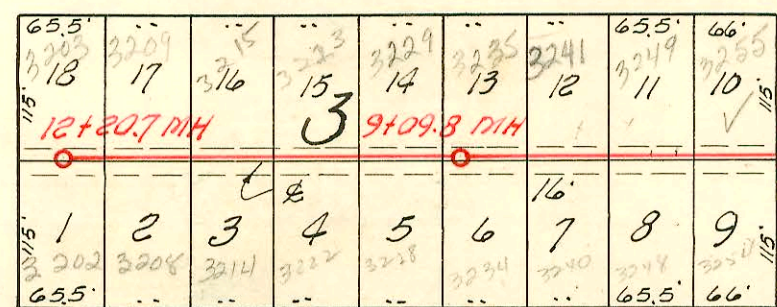 65.5' " " " " " " 65.5' 66'
3203 3209 3215 3223 3229 3235 3241 3249 3255
18 17 16 15 14 13 12 11 10
115' 115'
12+20.7 MH 3 9+09.8 MH
℄ 16'
1 2 3 4 5 6 7 8 9
115' 115'
3202 3208 3214 3222 3228 3234 3240 3248
65.5' " " " " " " 65.5' 66'